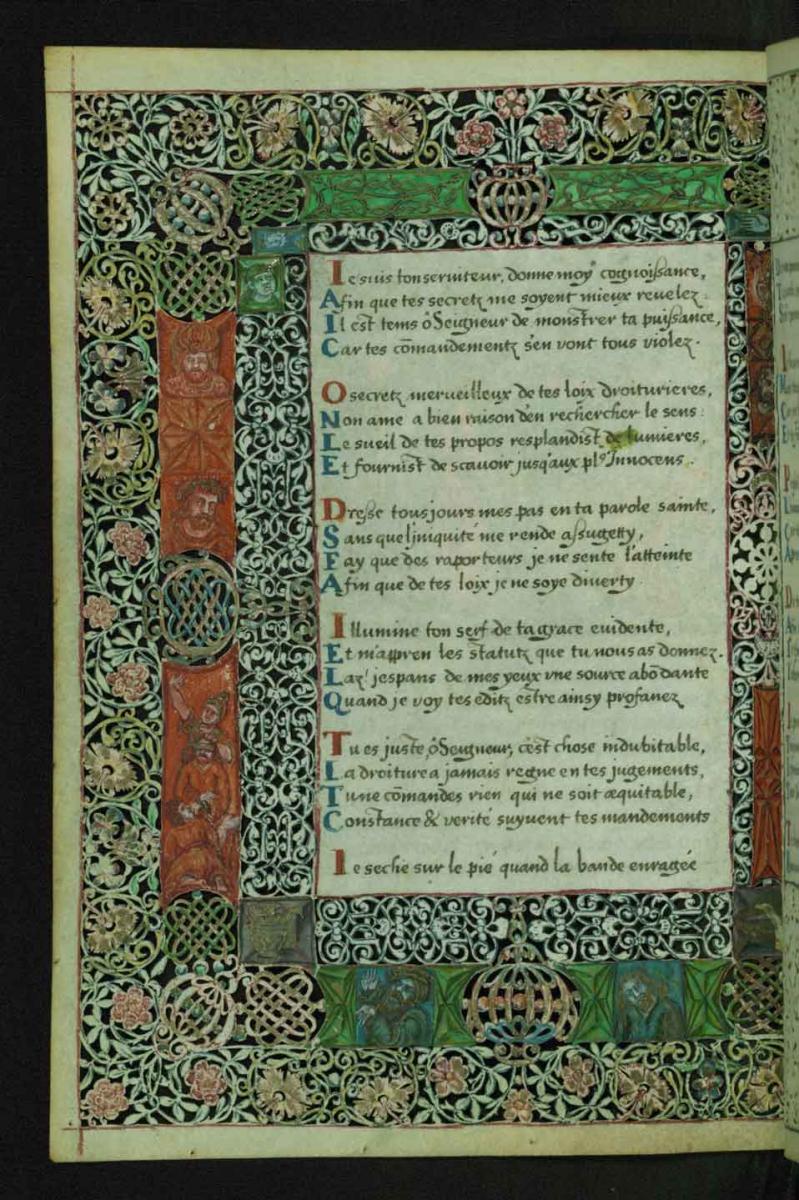 Ie suis ton serviteur, donne moy cognoissance,
Afin que tes secretz me soyent mieux revelez :
Il est tems ô Seigneur de monstrer ta puissance,
Car tes cōmandementz s'en vont tous violez .
O secretz merveilleux de tes loix droiturieres,
Non ame a bien raison d'en rechercher le sens :
Le sueil de tes propos resplandist de lumieres,
Et fournist de scavoir jusq'aux plº Innocens .
Dresse tousjours mes pas en ta parole sainte,
Sans que l'iniquité me rende assugetty,
Fay que des raporteurs je ne sente l'atteinte
Afin que de tes loix je ne soye diverty .
Illumine ton serf de ta grace evidente,
Et m'appren les statutz que tu nous as donnez .
Laz! j'espans de mes yeux vne source abōdante
Quand je voy tes editz estre ainsy profanez
Tu es juste, ô Seigneur, c'est chose indubitable,
La droiture a jamais regne en tes jugements,
Tu ne cōmandes rien qui ne soit æquitable,
Constance & verité suyuent tes mandements
Ie seche sur le pié quand la bande enragée